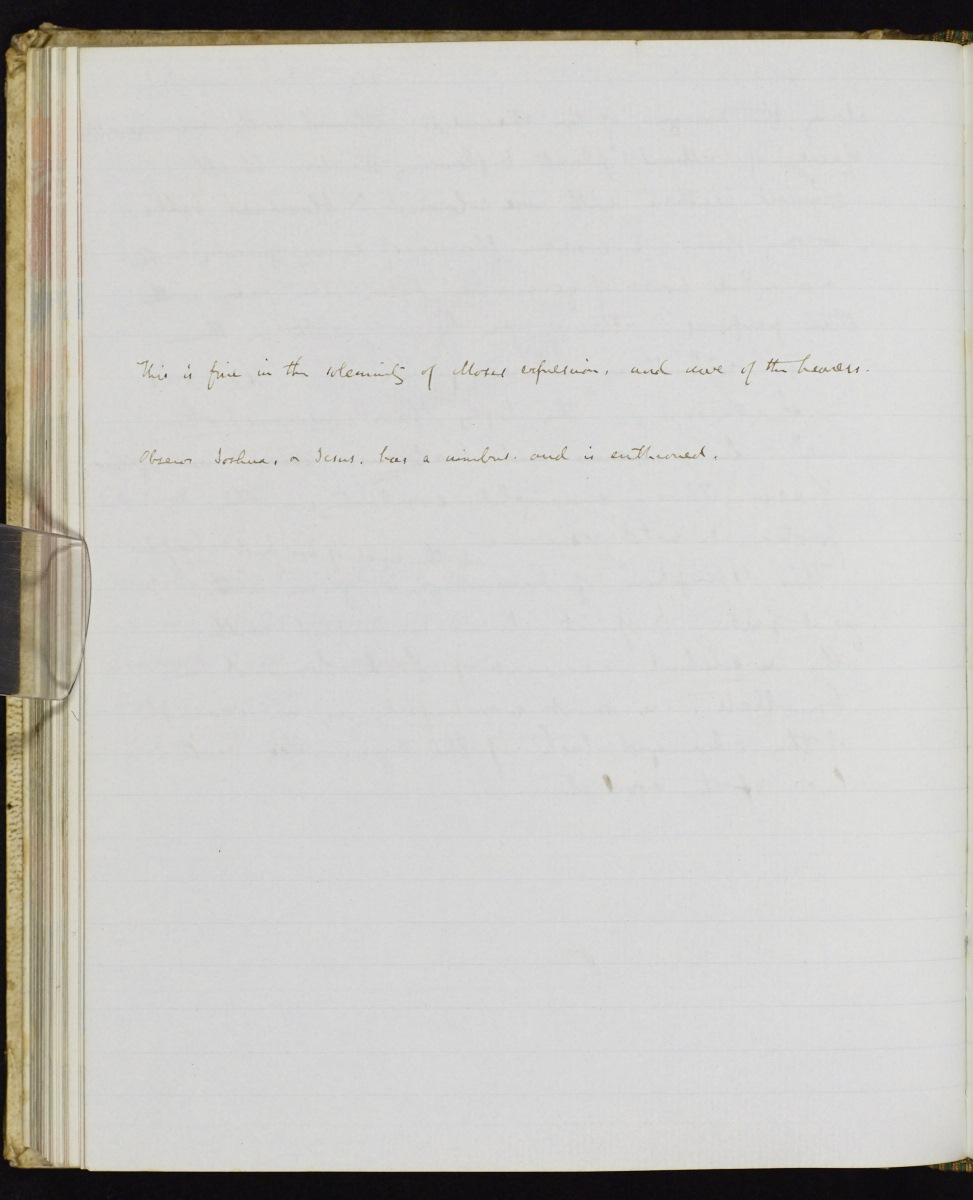 This is fine in the solemnity of Moses expression, and awe of the hearers.
Observe Joshua, or Jesus. has a nimbus. and is enthroned.